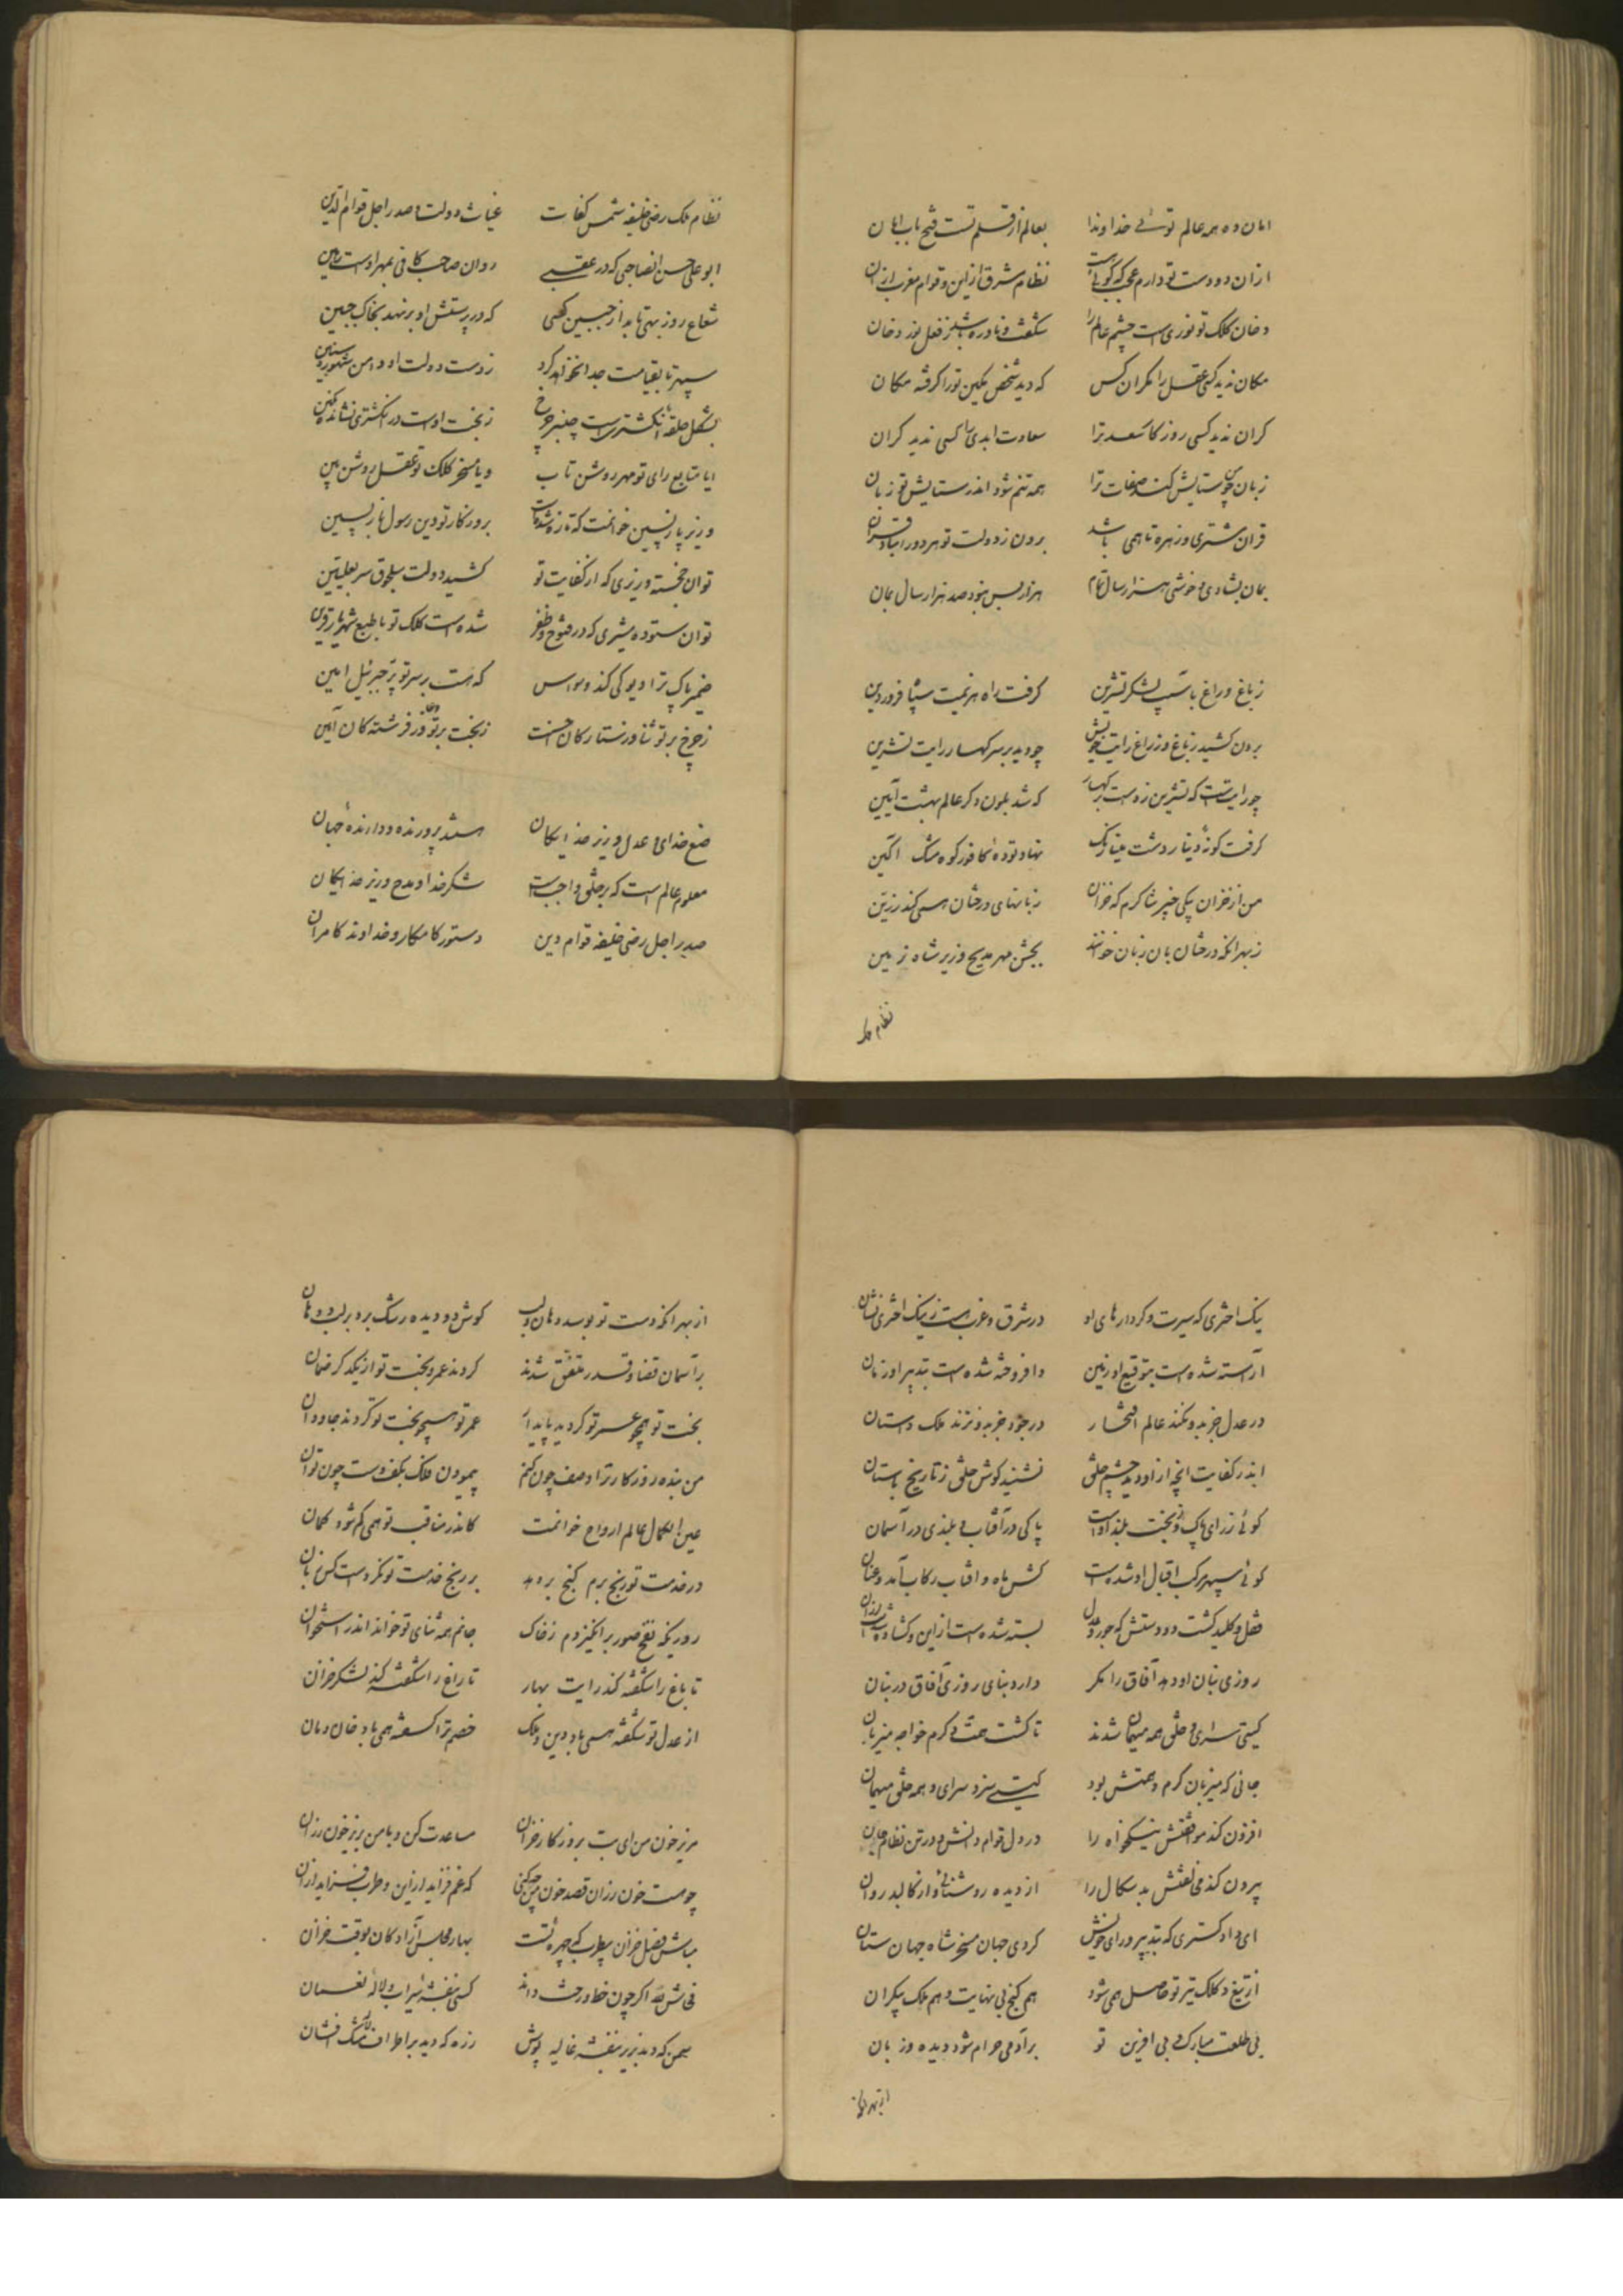 امان ده همه عالم توئی خداوندا بعالم از قلم تست فتح باب امان
ازان دو دست تو دارم عجب که گوئی هست نظام مشرق ازین و قوام مغرب ازان
دخان کلک تو نوری است چشم عالم را شگفت و نادره باشد ز فعل نور دخان
مکان ندید کسی عقل را مگر آن کس که دید شخص مکین تو را گرفته مکان
کران ندید کسی روزگار سعد ترا سعادت ابدی را کسی ندید کران
زبان چو ستایش کند صفات ترا همه تنم شود اندر ستایش تو زبان
قران مشتری و زهره تا همی باشد برون ز دولت تو هر دو را مباد قران
بمان بشادی و خوشی هزار سال تمام هزار بس نبود صد هزار سال بمان
ز باغ و راغ باسیب لشکر تشرین گرفت راه هزیمت سپاه فروردین
برون کشید ز باغ و ز راغ رایت خویش چو دید بر سر کهسار رایت تشرین
چو رایت است که تشرین زدست بر کهسار که شد بلون دگر عالم بهشت آیین
گرفت گونه دینار دشت مینا رنگ نهاد توده کافور کوه مشک آگین
من از خزان یکی خبر شاکرم که خزان زبانهای درختان همی کند زرین
ز بهر آنکه درختان بآن زبان خوانند بجشن مهر مدیح وزیر شاه زمین
نظام ملک
نظام ملک رضی خلیفه شمس کفات غیاث دولت و صدر اجل قوام الدین
ابو علی حسن الصاحبی که در عقبی روان صاحب کافی بمهر اوست رهین
شعاع روز بهی تابد از جبین کسی که در پرستش او بر نهد بخاک جبین
سپهر تا بقیامت جدا نخواهد کرد ز دست دولت او دامن شهور و سنین
بشکل حلقه انگشتر است چنبر چرخ ز بخت اوست در انگشتری نشانده نگین
ایا متابع رای تو مهر روشن تاب و یا مسخر کلک تو عقل روشن بین
وزیر بازپسین خوانمت که تازه شدست بروزگار تو دین رسول بازپسین
توان خجسته وزیری که از کفایت تو کشید دولت سلجوق سر بعلیین
توان ستوده مشیری که در فتوح و ظفر شده است کلک تو با طبع شهریار قرین
ضمیر پاک ترا دیو کی کند وسواس که هست بر سر تو پر جبرئیل امین
ز چرخ بر تو ثنا وز ستارگان احسنت ز بخت بر تو دعا وز فرشتگان آمین
صنع خدای و عدل وزیر خدایگان هستند پرورنده و دارنده جهان
معلوم عالم است که بر خلق واجب است شکر خدا و مدح وزیر خدایگان
صدر اجل رضی خلیفه قوام دین دستور کامکار و خداوند کامران
نیک اختری که سیرت و کردارهای او در شرق و غرب هست ز نیک اختری نشان
آراسته شده است بتوقیع او زمین وافروخته شده است بتدبیر او زمان
در عدل جز بدو نکند عالم افتخار در جود جز بدو نزند ملک داستان
اندر کفایت آنچه ازاو دید چشم خلق نشنید گوش خلق ز تاریخ باستان
گوئی ز رای پاک و ز بخت بلند اوست پاکی در آفتاب و بلندی در آسمان
گوئی سپهر مرکب اقبال او شده است کش ماه و آفتاب رکاب آمد و عنان
قفل و کلید گشت دو دستش که جور و عدل بسته شده است ازین و گشاده شدست ازان
روزی بنان او دهد آفاق را مگر دارد بنای روزی آفاق در بنان
گیتی سرای و خلق همه میهمان شدند تا گشت همت و کرم خواجه میزبان
جائی که میزبان کرم و همتش بود گیتی سزد سرای و همه خلق میهمان
افزون کند موافقتش نیکخواه را در دل قوام دانش و در تن نظام جان
بیرون کند مخالفتش بدسگال را از دیده روشنائی و از کالبد روان
ای دادگستری که بتدبیر و رای خویش کردی جهان مسخر شاه جهان ستان
از تیغ و کلک تیز تو حاصل همی شود هم گنج بی نهایت و هم ملک بیکران
بی طلعت مبارک و بی آفرین تو بر آدمی حرام شود دیده و زبان
از بهر آنکه
از بهر آنکه دست تو بوسد دهان و لب گوش و دو دیده رشک برد بر لب و دهان
بر آسمان قضا و قدر متفق شدند کردند عمر و بخت تو از یکدگر ضمان
بخت تو همچو عمر تو گردید پایدار عمر تو همچو بخت تو کردند جاودان
من بنده روزگار ترا وصف چون کنم پیمودن فلک بکف دست چون توان
عین الکمال عالم ارواح خوانمت کاندر مناقب تو همی گم شود گمان
در خدمت تو رنج برم گنج بر دهد بر رنج خدمت تو نکردست کس زیان
روزیکه نفخ صور بر انگیزدم ز خاک جانم همه ثنای تو خواند اندر استخوان
تا باغ را شکفته کند رایت بهار تا راغ را شکفته کند لشکر خزان
از عدل تو شکفته همی باد دین و ملک خصم ترا کفته همی باد خان و مان
مریز خون من ای بت بروزگار خزان مساعدت کن و با من بریز خون رزان
چو هست خون رزان قصد خون من چه کنی که غم فزاید ازین و طرب فزاید ازان
مباش فصل خزان بی طرب که چهره تست بهار مجلس آزادگان بوقت خزان
خطاش گر چون خط و رخت داند کسی بنفشه سیراب و لاله نعمان
سمن که دید بزیر بنفشه غالیه پوش زره که دید بر اطراف لاله مشک افشان